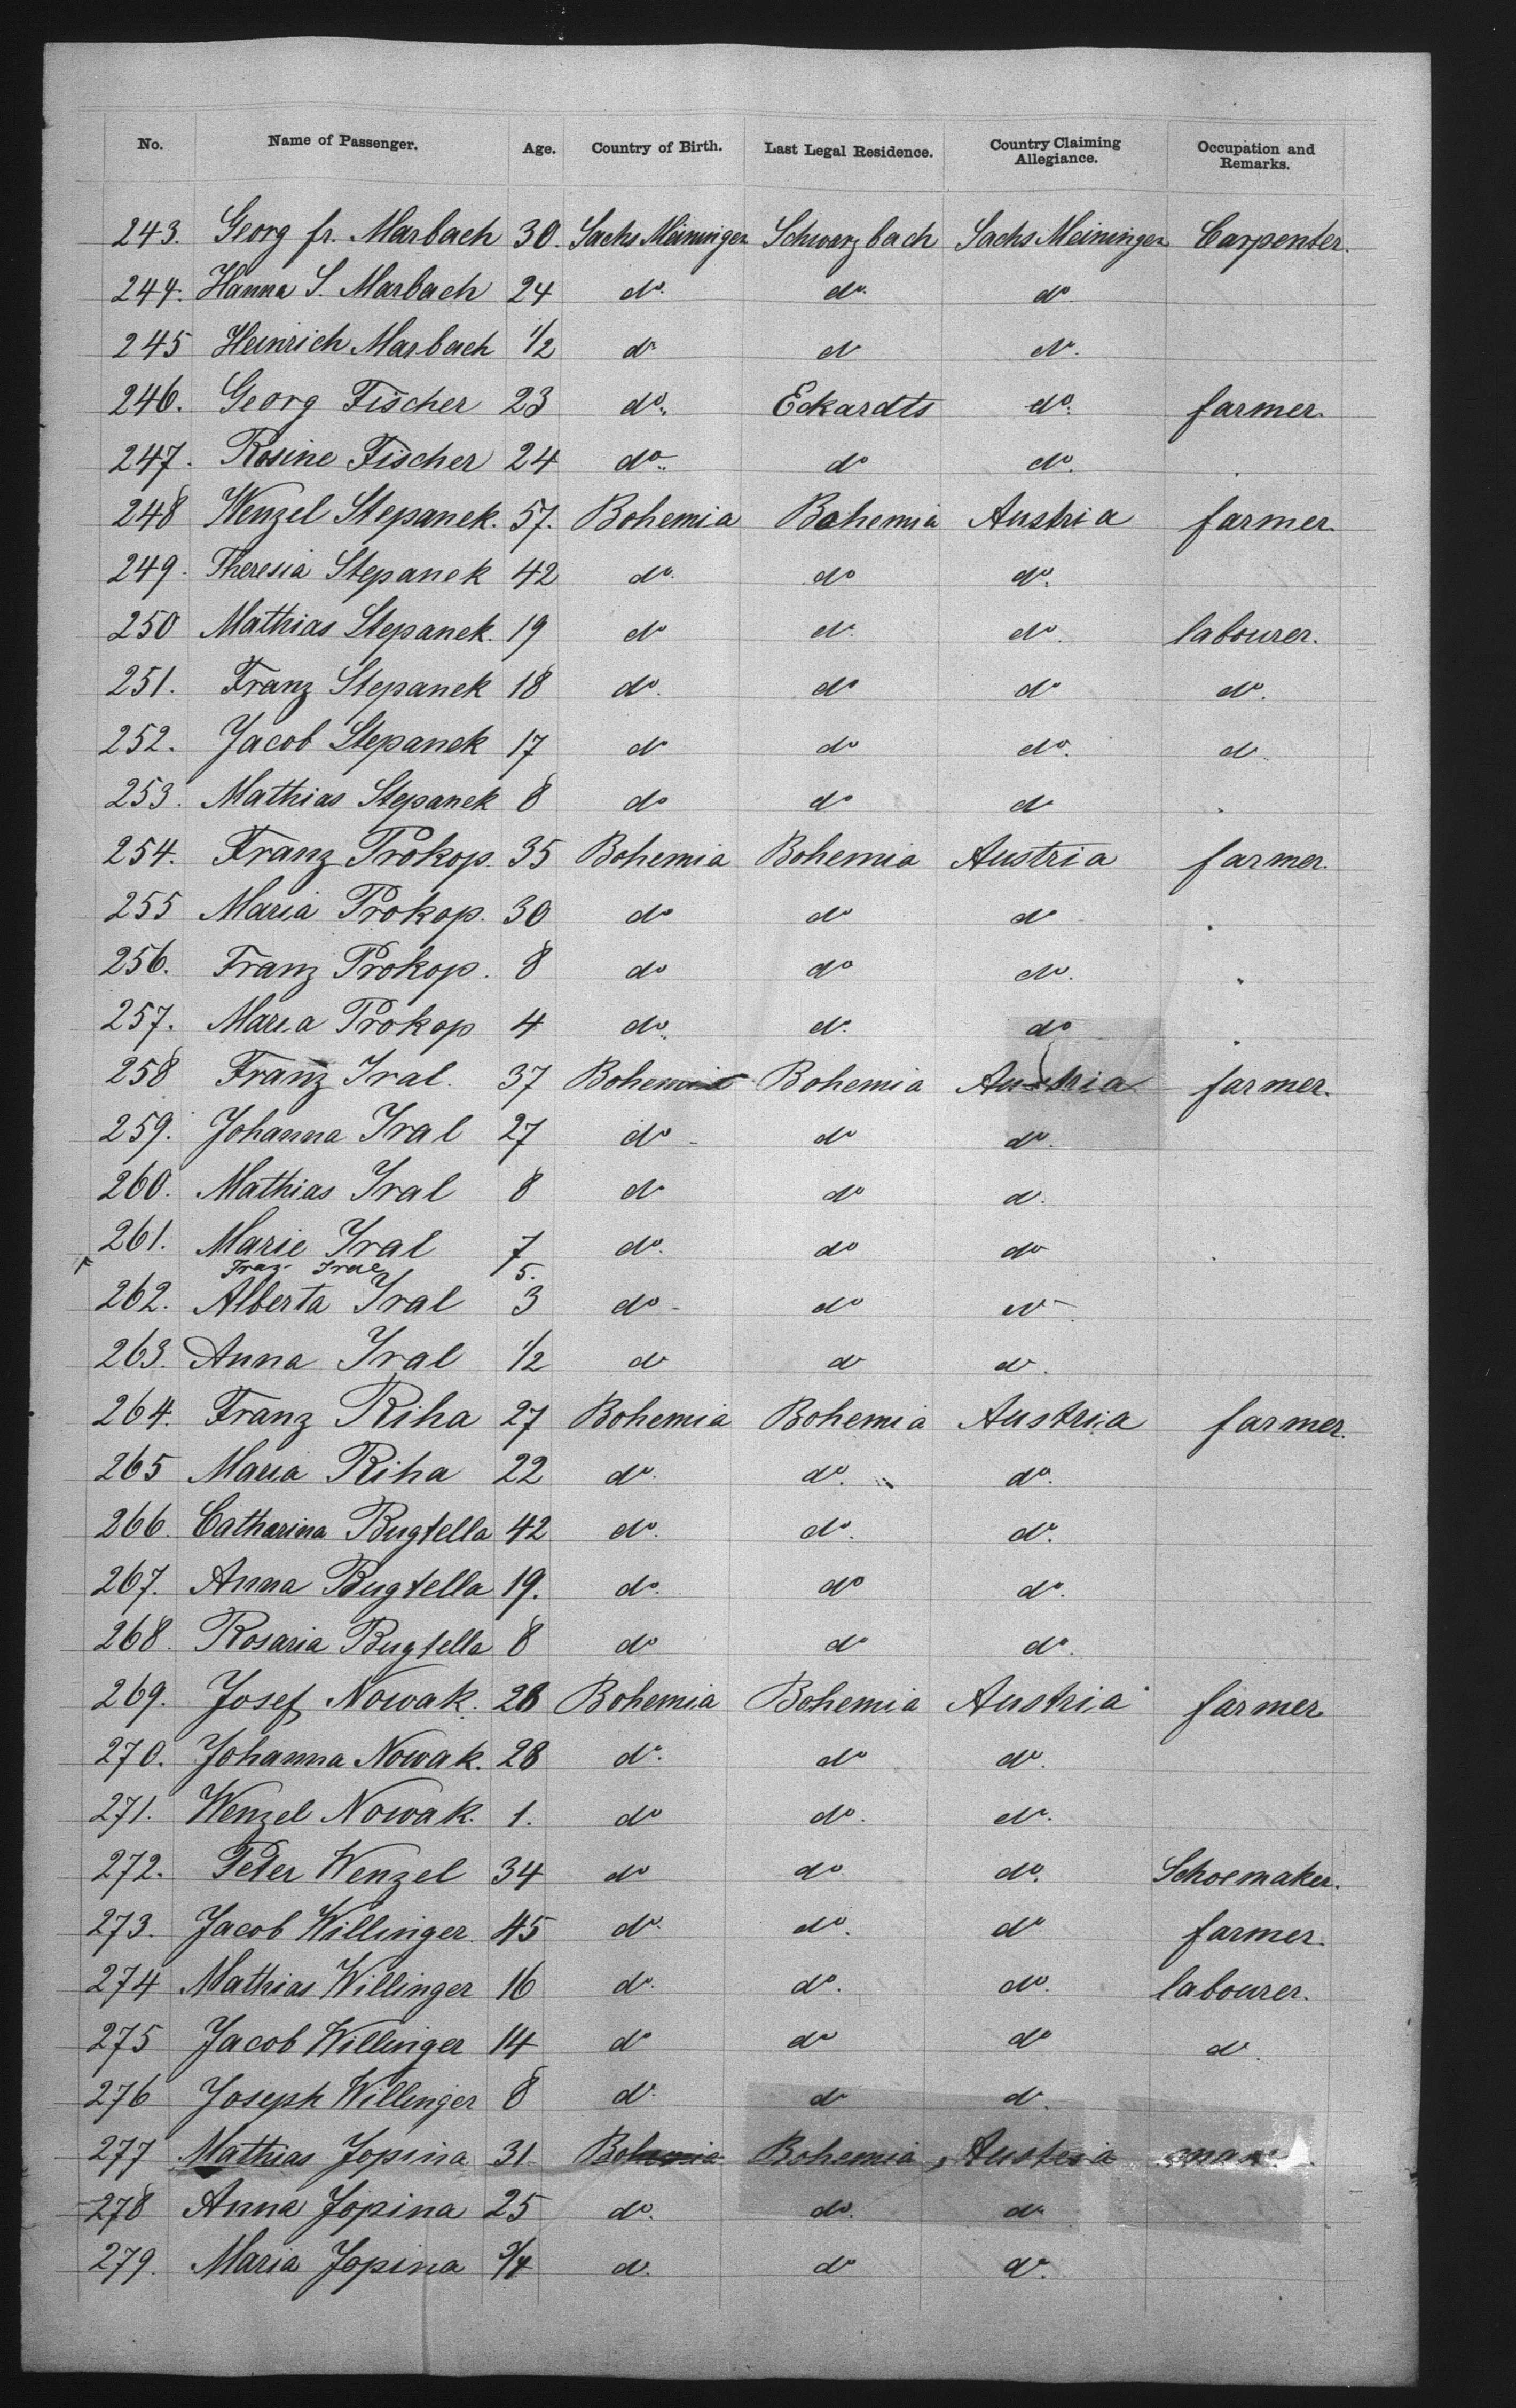 No. Name of Passenger. Age. Country of Birth. Last Legal Residence. Country Claiming Allegiance. Occupation and Remarks.
243. Georg fr. Marbach 30. Sachs Meiningen Schwarzbach Sachs Meiningen Carpenter.
244. Hanna S. Marbach 24 do. do. do
245 Heinrich Marbach 1/2 do do do.
246. Georg Fischer 23 do. Eckardts do. farmer.
247. Rosine Fischer 24 do. do do.
248 Wenzel Stepanek. 57. Bohemia Bohemia Austria farmer
249. Theresia Stepanek 42 do. do do.
250 Mathias Stepanek. 19 do do. do. labourer.
251. Franz Stepanek 18 do. do do do.
252. Jacob Stepanek 17 do do do. do.
253. Mathias Stepanek 8 do do do
254. Franz Prokop. 35 Bohemia Bohemia Austria farmer.
255 Maria Prokop. 30 do do do
256. Franz Prokop. 8 do do do.
257. Maria Prokop 4 do. do. do
258 Franz Iral. 37 Bohemia Bohemia Austria farmer.
259. Johanna Iral 27 do do do.
260. Mathias Iral 8 do do do.
261. Marie Iral 7 do. do do
Franz Iral 5.
262. Alberta Iral 3 do do do
263. Anna Iral 1/2 do do do.
264. Franz Riha 27 Bohemia Bohemia Austria farmer.
265 Maria Riha 22 do. do. do.
266. Catharina Bugtella 42 do. do. do.
267. Anna Bugtella 19. do. do do.
268. Rosaria Bugtella 8 do do do.
269. Josef Nowak. 28 Bohemia Bohemia Austria farmer
270. Johanna Nowak. 28 do. do do.
271. Wenzel Nowak. 1. do do. do.
272. Peter Wenzel 34 do do. do. Schoemaker.
273. Jacob Willinger. 45 do. do. do farmer.
274 Mathias Willinger 16 do. do. do. labourer.
275 Jacob Willinger 14 do do do do.
276 Joseph Willinger 8 do. do do.
277 Mathias Jopina 31 Bohemia Bohemia, Austria
278 Anna Jopina 25 do. do. do.
279. Maria Jopina 3/4 do. do do.